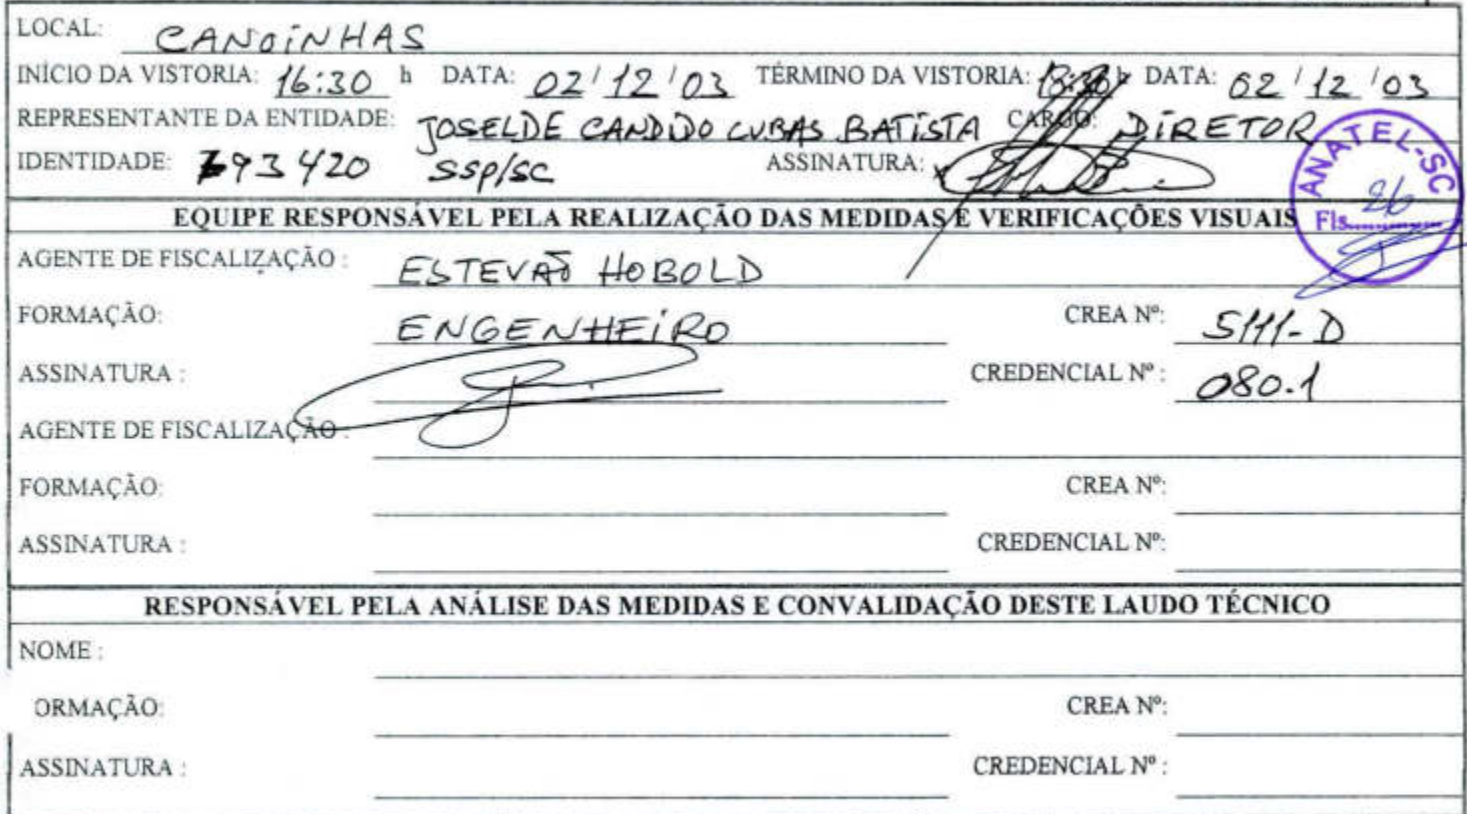 LOCAL: CANOINHAS
INÍCIO DA VISTORIA: 16:30 h DATA: 02/12/03 TÉRMINO DA VISTORIA: h DATA: 02/12/03
REPRESENTANTE DA ENTIDADE: JOSELDE CANDIDO CUBAS BATISTA CARGO: DIRETOR
IDENTIDADE: 793420 SSP/SC ASSINATURA:
ANATEL-SC
Fls. 26
EQUIPE RESPONSÁVEL PELA REALIZAÇÃO DAS MEDIDAS E VERIFICAÇÕES VISUAIS
AGENTE DE FISCALIZAÇÃO : ESTEVÃO HOBOLD
FORMAÇÃO: ENGENHEIRO CREA Nº: 5111-D
ASSINATURA : CREDENCIAL Nº : 080.1
AGENTE DE FISCALIZAÇÃO :
FORMAÇÃO: CREA Nº:
ASSINATURA : CREDENCIAL Nº:
RESPONSÁVEL PELA ANÁLISE DAS MEDIDAS E CONVALIDAÇÃO DESTE LAUDO TÉCNICO
NOME :
ORMAÇÃO: CREA Nº:
ASSINATURA : CREDENCIAL Nº :